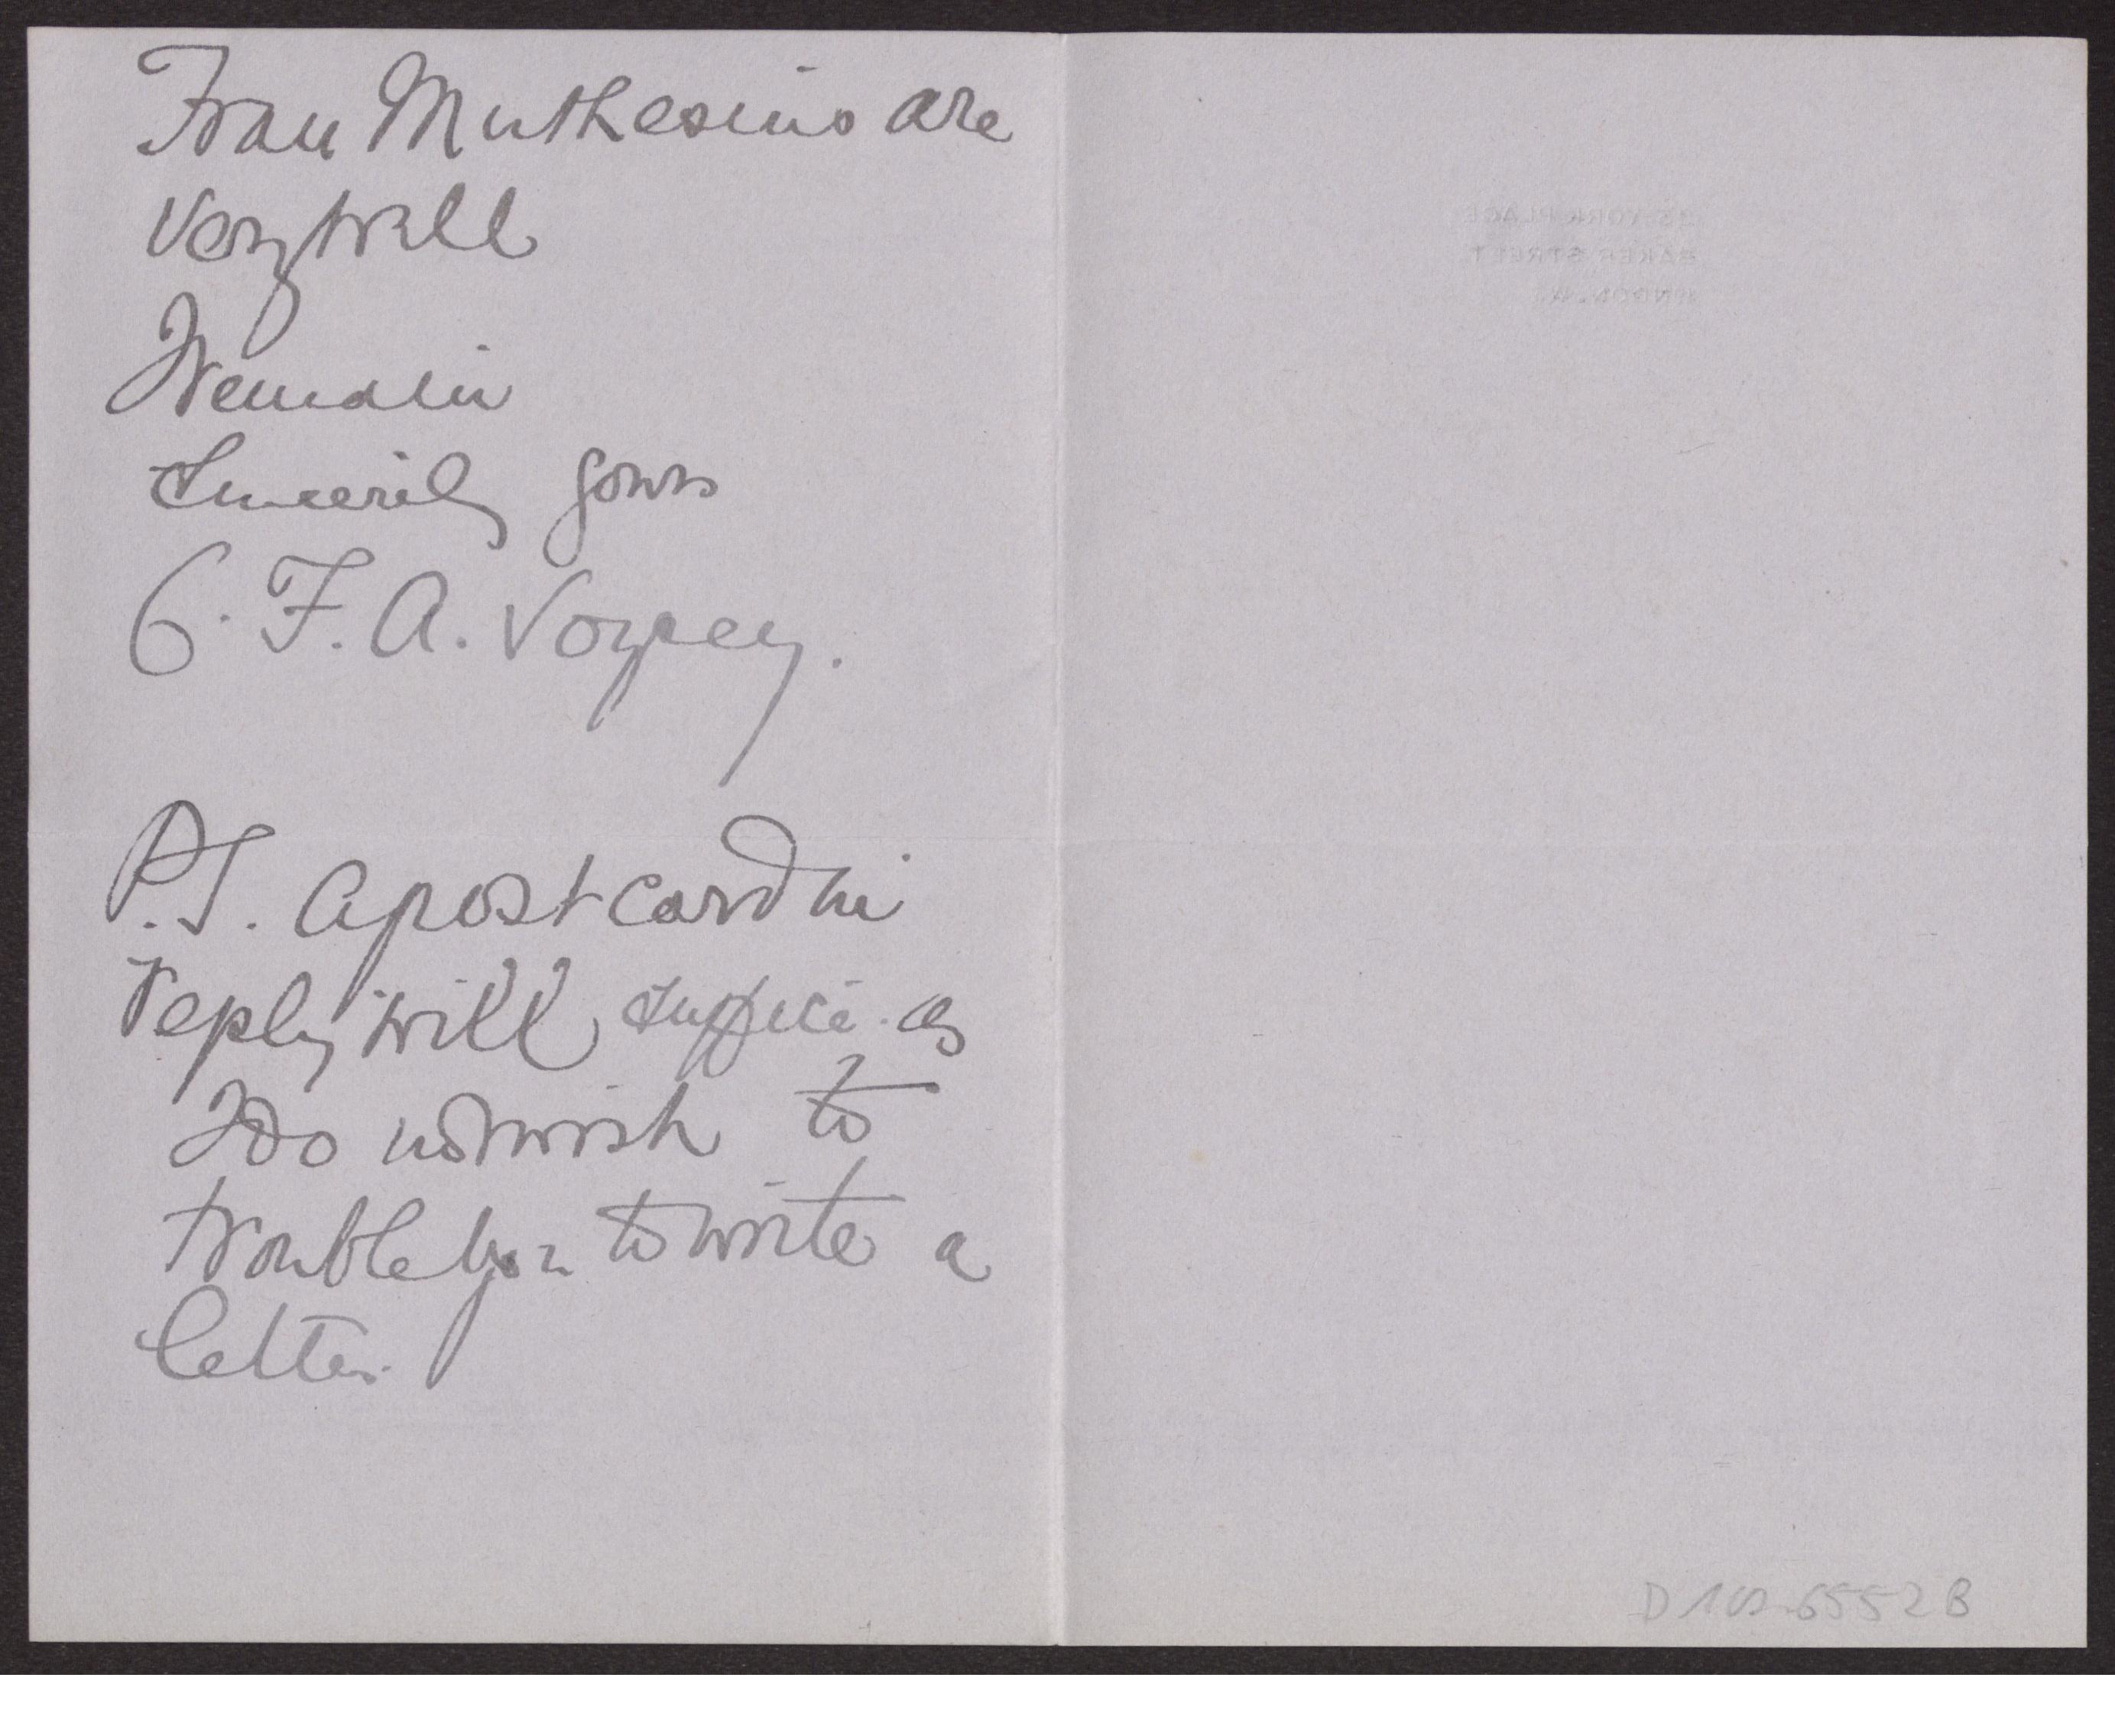 Frau Muthesius are
very well
I remain
Sincerely yours
C. F. A. Voysey.
P.S. A post card in
reply will suffice. as
I do not wish to
trouble you to write a
letter.
YORK PLACE
BAKER STREET
LONDON. W.
6552 B